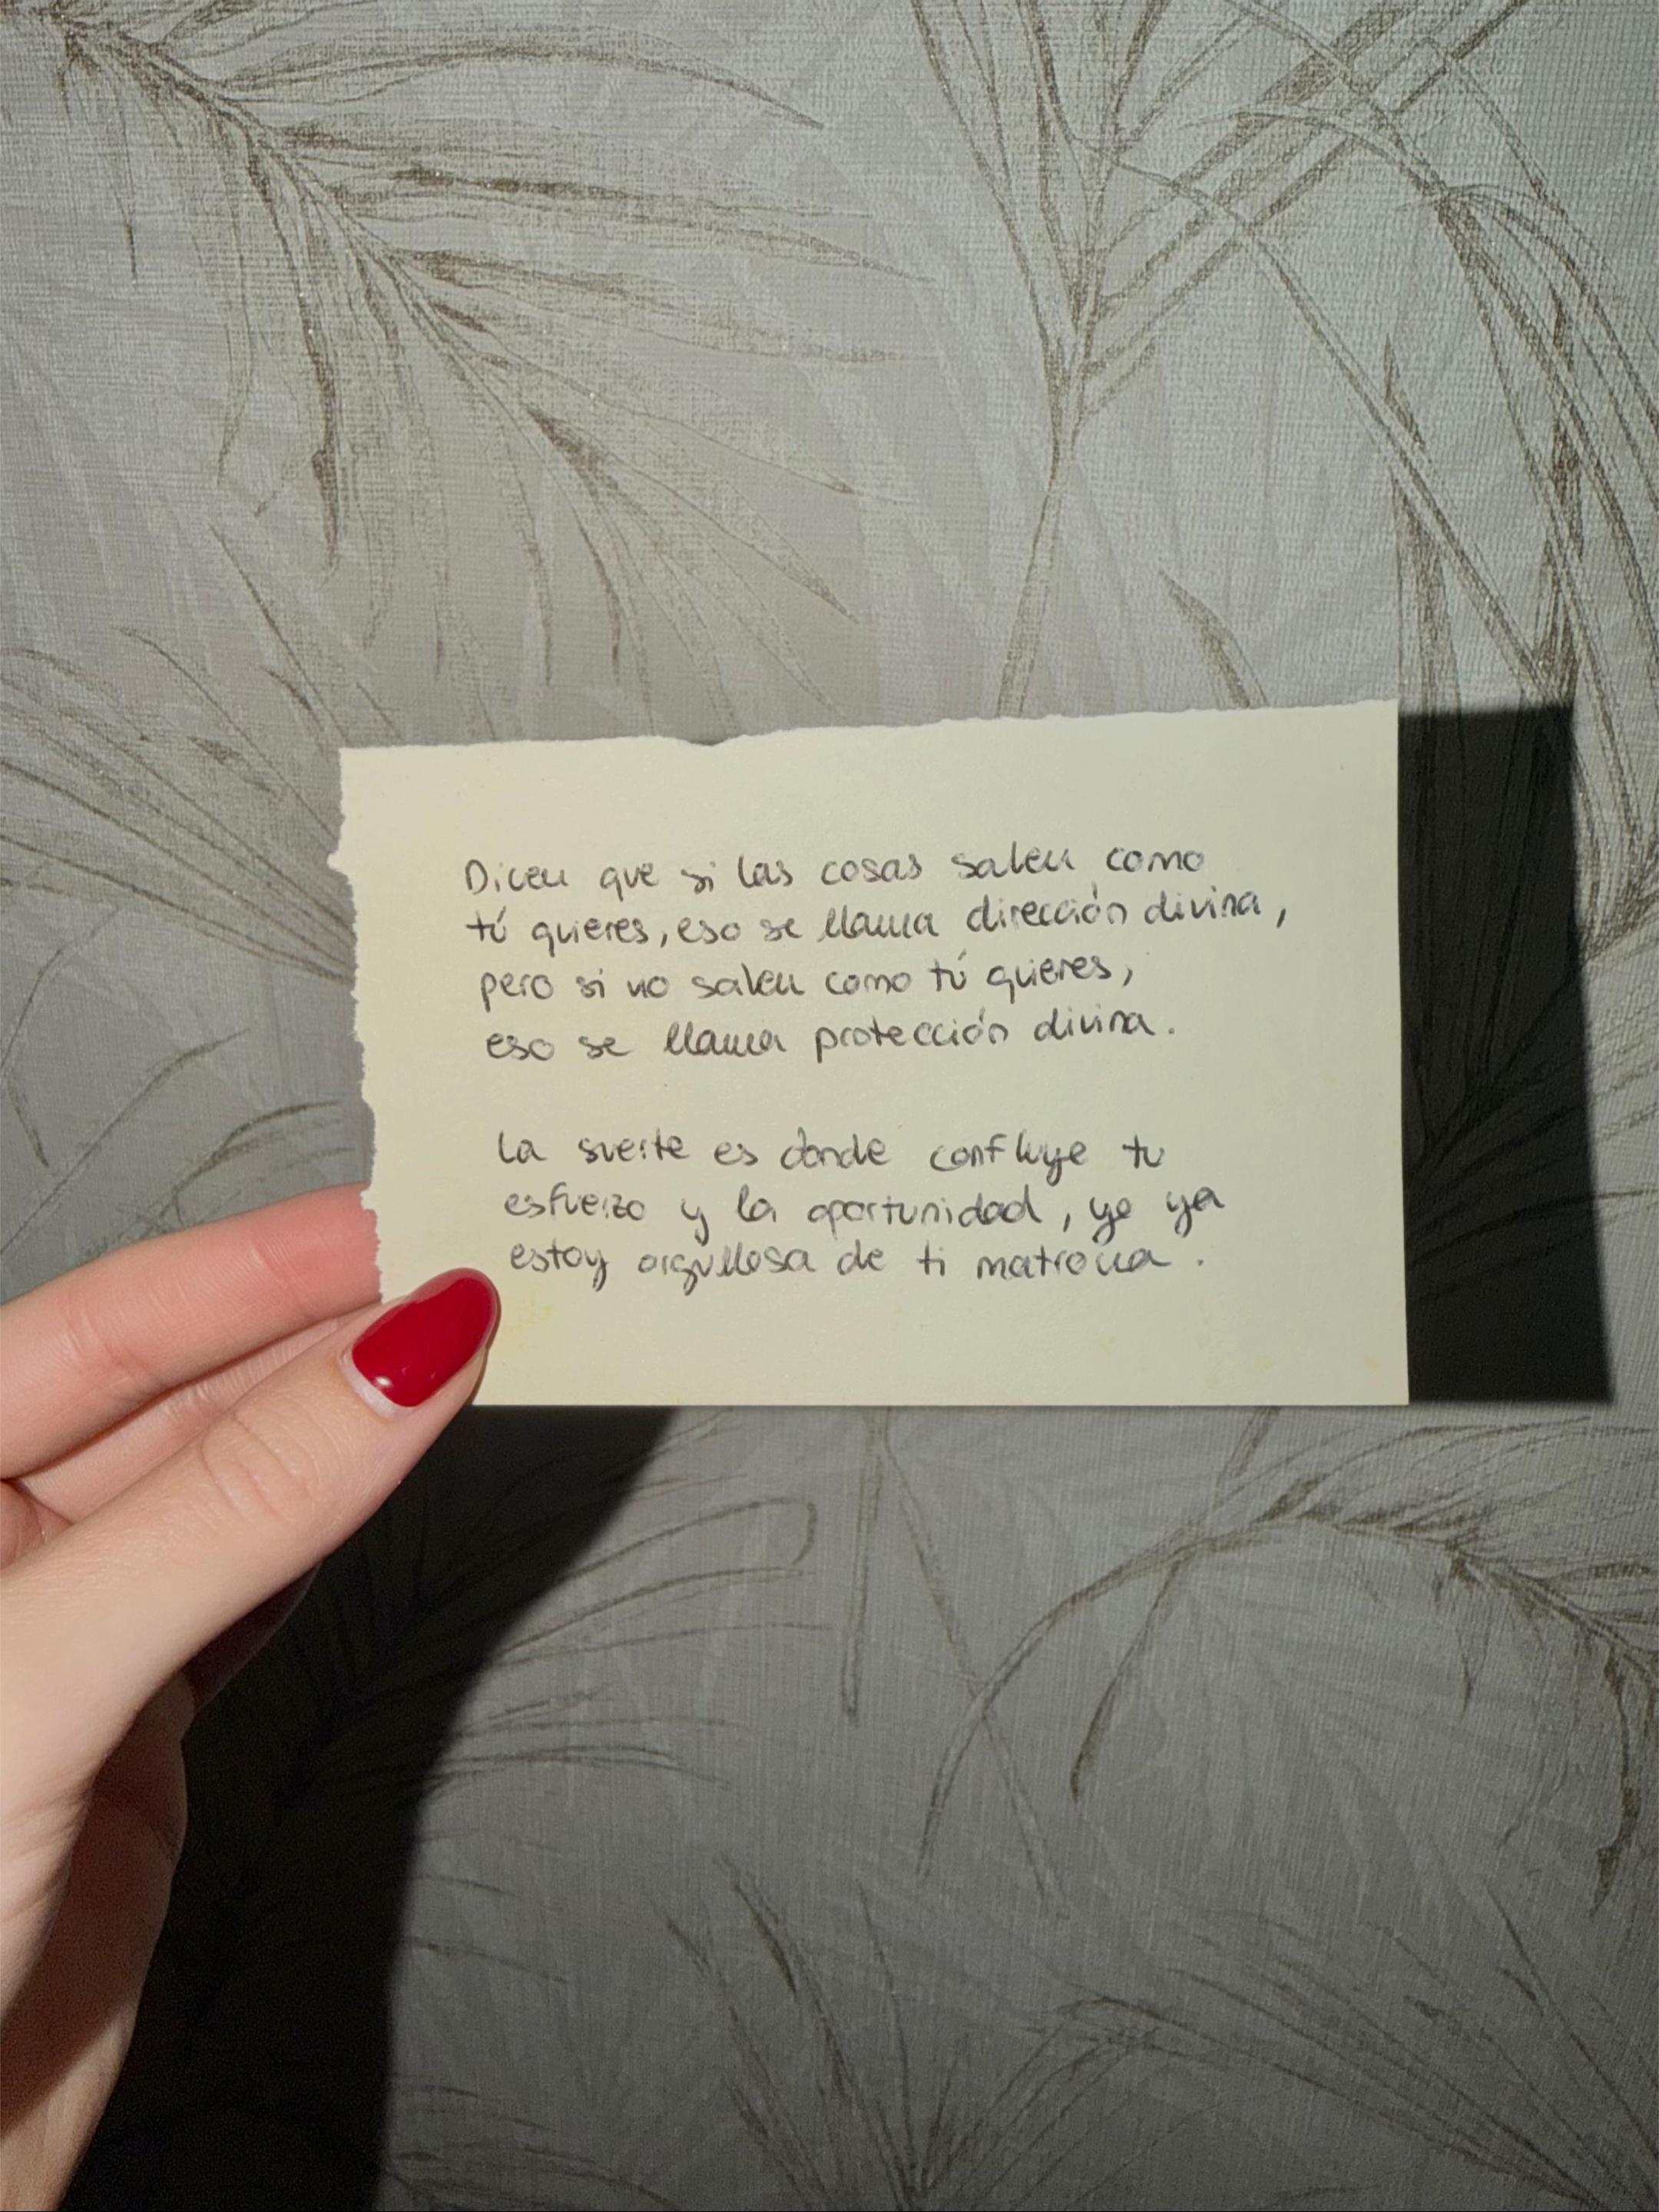 Dicen que si las cosas salen como
tú quieres, eso se llama dirección divina,
pero si no salen como tú quieres,
eso se llama protección divina.
La suerte es donde confluye tu
esfuerzo y la oportunidad, yo ya
estoy orgullosa de ti matrona.